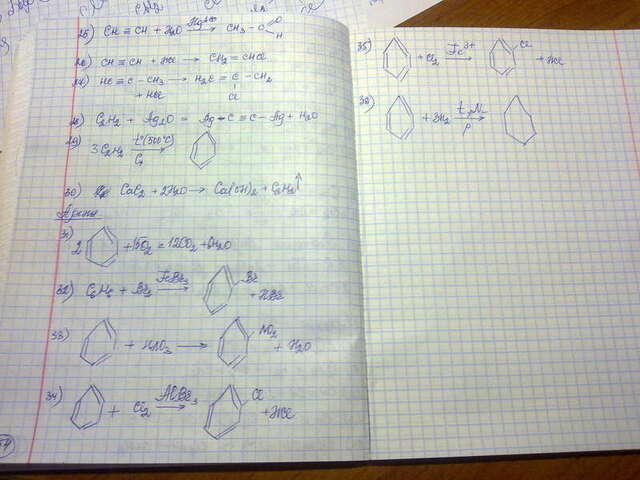 25) CH ≡ CH + H2O Hg2+ → CH3 - C O H
26) CH ≡ CH + HCl → CH2 = CHCl
27) HC ≡ C - CH3 → H2C = C - CH3
+ HCl Cl
28) C2H2 + Ag2O = Ag - C ≡ C - Ag + H2O
29) 3C2H2 t°(500°C) → C
30) CaC2 + 2H2O → Ca(OH)2 + C2H2↑
Арены
31) 2 + 15O2 = 12CO2 + 6H2O
32) C6H6 + Br2 FeBr3 → Br + HBr
33) + HNO3 → NO2 + H2O
34) + Cl2 AlBr3 → Cl + HCl
35) + Cl2 Fe3+ → Cl + HCl
36) + 3H2 t, Ni → P